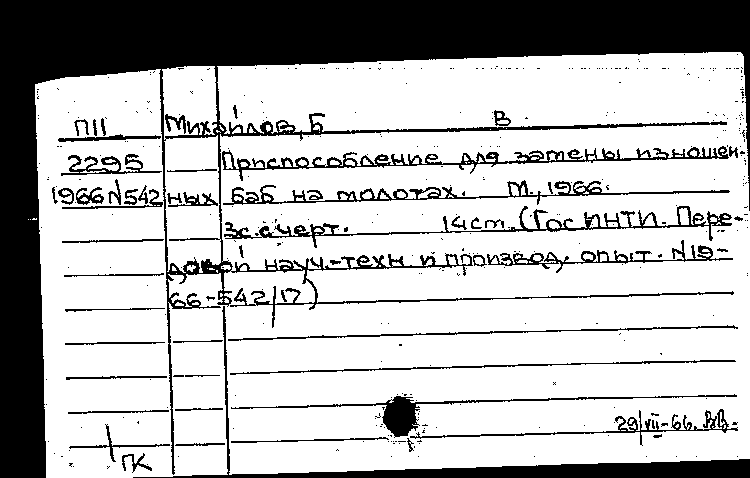 П11 Михайлов, Б В.
2295 Приспособление для замены изношен-
1966 N542 ных баб на молотах. М., 1966.
3с. с черт. 14см. (Гос ИНТИ. Пере-
довой науч.-техн и производ. опыт. N19-
66-542/17)
29/VII-66. ВВ-
ПК